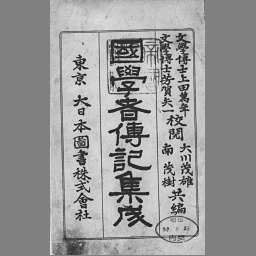 文學博士上田萬年
文學博士芳賀矢一
校閲
大川茂雄
南茂樹
共編
國學者傳記集成
東京 大日本圖書株式會社